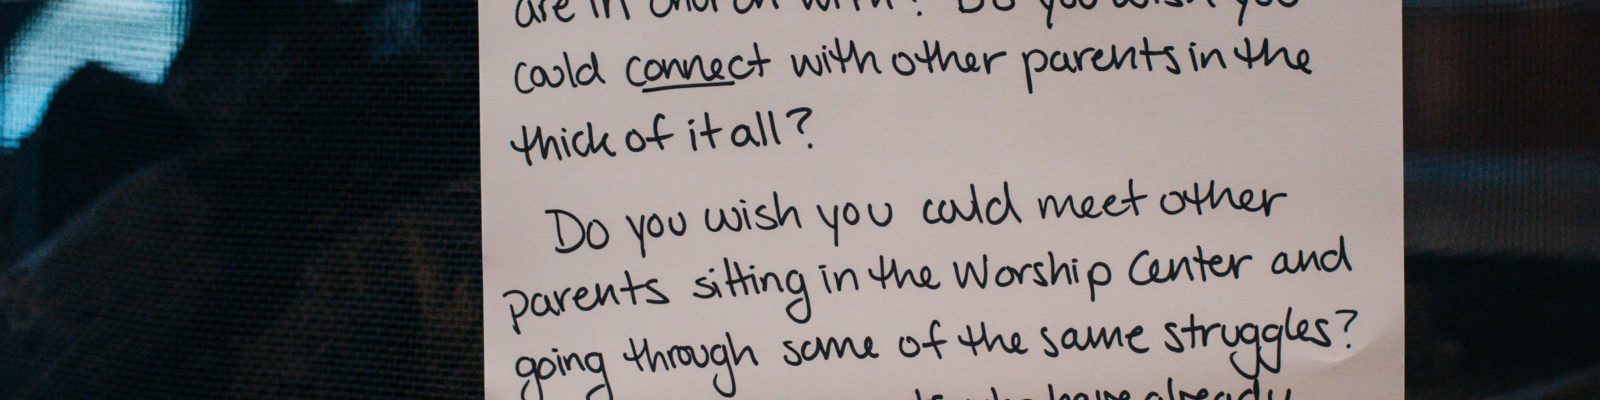 are in church with? Do you wish you
could connect with other parents in the
thick of it all?
Do you wish you could meet other
parents sitting in the Worship Center and
going through some of the same struggles?
who have already